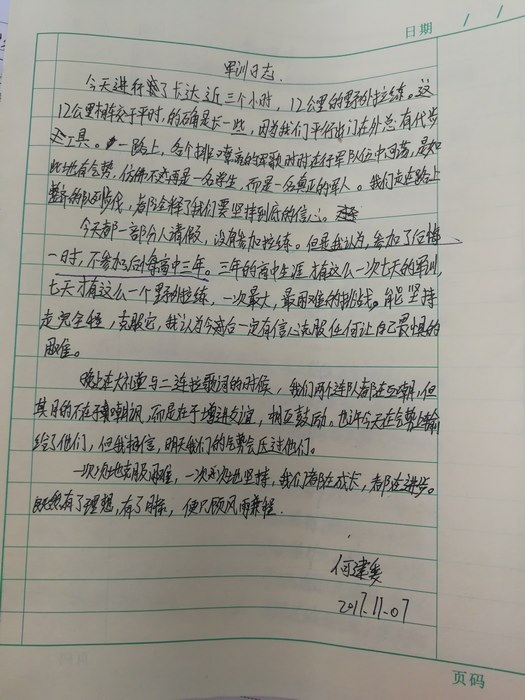 日期 / /
军训日志.
今天进行了长达近三个小时, 12公里的野外拉练。这
12公里相较于平时, 的确是长一些, 因为我们平行出门在外总有代步
工具。一路上, 各个排嘹亮的军歌时时在行军队伍中回荡, 是如
此地有气势, 仿佛不再是一名学生, 而是一名真正的军人。我们走在路上
整齐的队列步伐, 都诠释了我们要坚持到底的信心。
今天都一部分人请假, 没有参加拉练。但是我认为, 参加了后悔
一时, 不参加后悔高中三年。三年的高中生涯才有这么一次七天的军训,
七天才有这么一个野外拉练, 一次最大, 最困难的挑战。能坚持
走完全程, 克服它, 我认为今后一定有信心克服任何让自己畏惧的
困难。
晚上在大礼堂与二连拉歌词的时候, 我们两个连队都在互嘲, 但
其目的不在于嘲讽, 而是在于增进友谊, 相互鼓励, 也许今天在气势上输
给了他们, 但我相信, 明天我们的气势会压过他们。
一次次地克服困难, 一次次地坚持, 我们都在成长, 都在进步。
既然有了理想, 有了目标, 便只顾风雨兼程.
何建
2017.11.07
页码